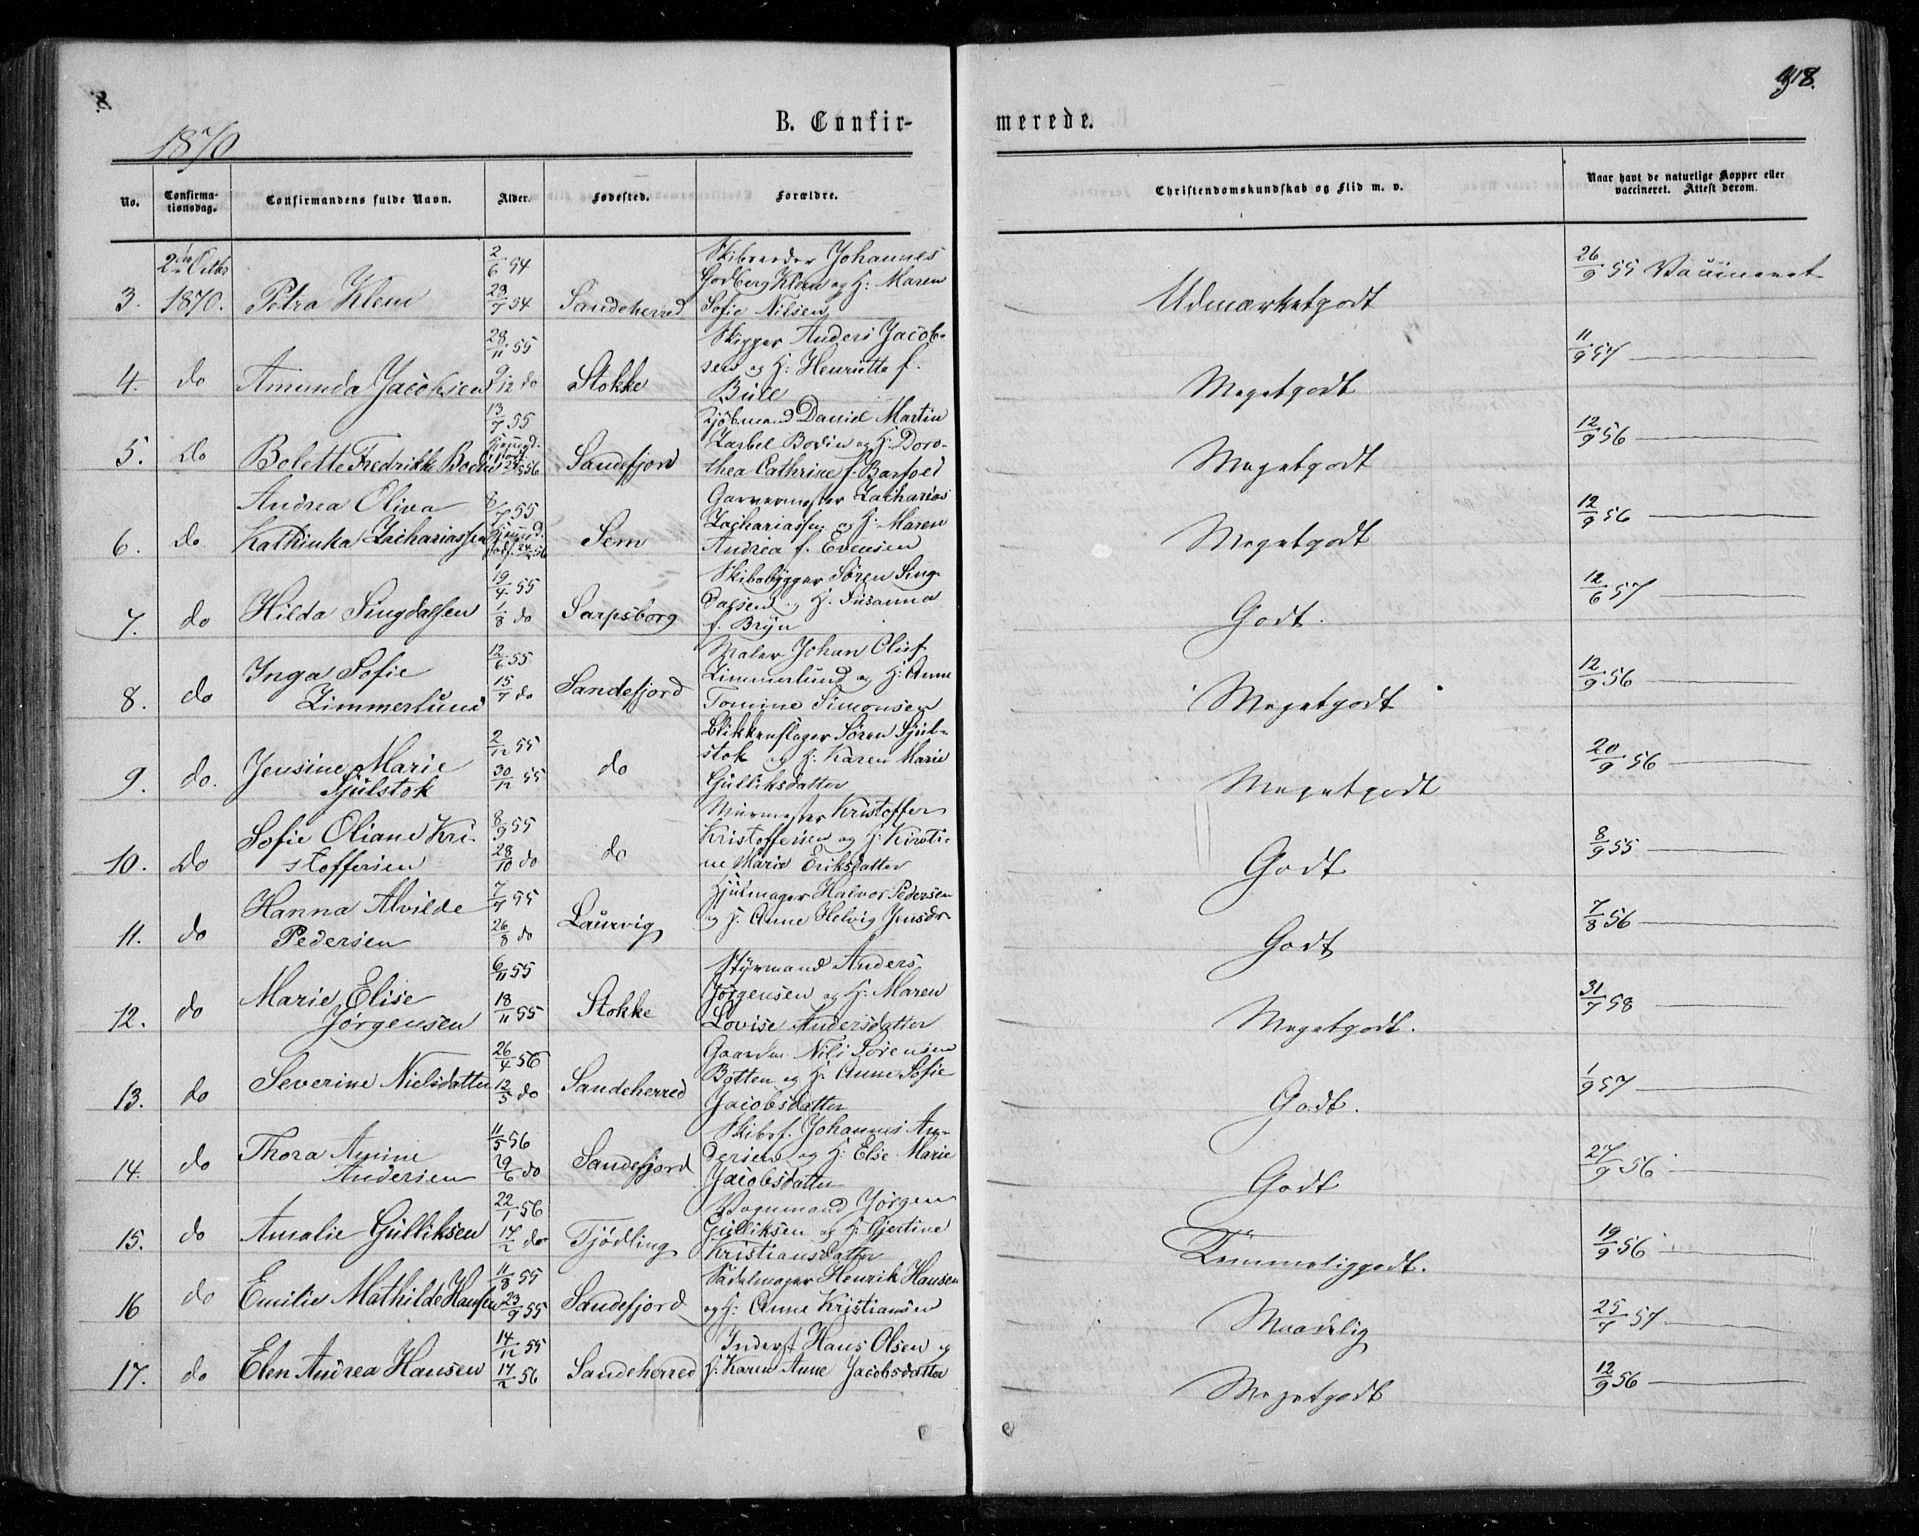 8
318.
B. Confirmerede.
1870
No. Confirmationsdag. Confirmandens fulde Navn. Alder. Fødested. Forældre. Christendomskundskab og Flid m. v. Naar havt de naturlige Kopper eller vaccineret. Attest derom.
2den Octbr 2/6 54 Skibsreder Johannes
Godberg Klem og H: Maren 26/9 55 Vaccineret
3. 1870. Petra Klem 23/7 54 Sandeherred Sofie Nilsen Udmærketgodt
28/11 55 Skipper Anders Jacob-
sen og H: Henriette f. 11/9 57
4. do Amunda Jacobsen 9/12 do Stokke Bull Megetgodt
13/7 55 Kjøbmand Daniel Martin
Bodin og H: Doro- 12/9 56
5. do Bolette Fredrikke Bodin Sandefjord thea Cathrine f. Barfoed Megetgodt
Andrea Oliva 8/7 55 Garvermester Zacharias
Zachariassen og H: Maren 12/9 56
6. do Kathinka Zachariassen Sem Andrea f. Evensen Megetgodt
19/4 55 Skibsbygger Søren Sing-
dalsen og H. Susanna 12/6 57
7. do Hilda Singdalsen 1/8 do Sarpsborg f. Bryn Godt.
Inga Sofie 12/6 55 Maler Johan Oluf
Zimmerlund og H: Anne 12/9 56
8. do Zimmerlund 15/7 do Sandefjord Tomine Simonsen Megetgodt
Jensine Marie 2/12 55 Blikkenslager Søren Sjul-
stok og H: Karen Marie 20/9 56
9. do. Sjulstok 30/12 55 do Gulliksdatter Megetgodt
Sofie Oliane Kri- 8/9 55 Murmester Kristoffer
Kristoffersen og H: Kirsti- 8/9 55
10. do stoffersen 28/10 do do ne Marie Eriksdatter Godt
Hanna Alvilde 7/7 55 Hjulmager Halvor Pedersen
11. do Pedersen 26/8 do Laurvig og H. Anne Helvig Jensdr. Godt 7/8 56
Marie Elise 6/11 55 Styrmand Anders
Jørgensen og H: Maren 31/7 58
12. do Jørgensen 18/11 55 Stokke Lovise Andersdatter Megetgodt.
26/4 56 Gaardm. Nils Sørensen
Botten og H. Anne Sofie 1/9 57
13. do Severine Nielsdatter 12/5 do Sandeherred Jacobsdatter Godt.
Thora Amine 11/5 56 Skibsf. Johannes An-
dersen og H: Else Marie 27/9 56
14. do Andersen 29/6 do Sandefjord Jacobsdatter Godt
22/1 56 Vognmand Jørgen
Gulliksen og H: Gjertine 19/9 56
15. do Amalie Gulliksen 17/2 do Tjødling Kristiansdatter Temmeliggodt.
11/8 55 Sadelmager Henrik Hansen
16 do Emilie Mathilde Hansen 23/9 55 Sandefjord og H: Anne Kristiansen Maadelig 25/7 57
14/12 55 Inderst Hans Olsen og
17. do Elen Andrea Hansen 17/2 56 Sandeherred H: Karen Anne Jacobsdatter Megetgodt 12/9 56